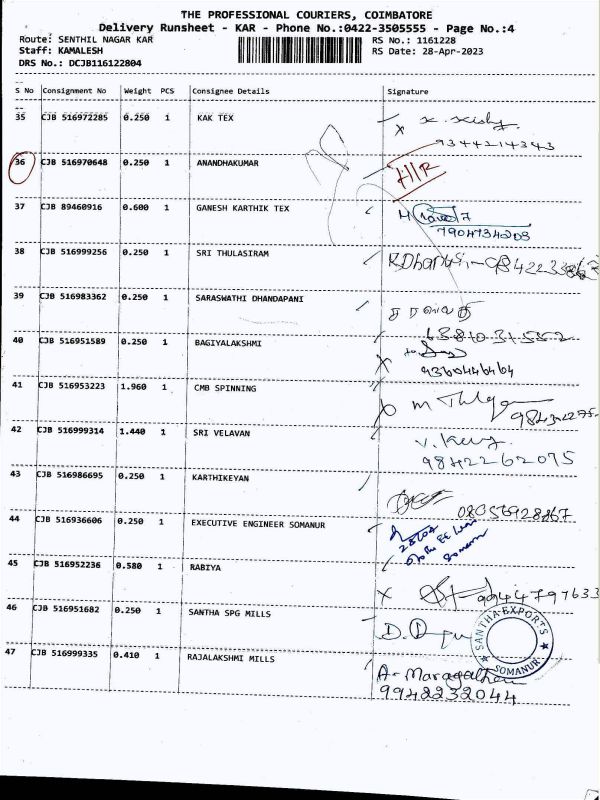 THE PROFESSIONAL COURIERS, COIMBATORE
Delivery Runsheet - KAR - Phone No.:0422-3505555 - Page No.:4
Route: SENTHIL NAGAR KAR RS No.: 1161228
Staff: KAMALESH RS Date: 28-Apr-2023
DRS No.: DCJB116122804
S No Consignment No Weight PCS Consignee Details Signature
35 CJB 516972285 0.250 1 KAK TEX
9344214343
36 CJB 516970648 0.250 1 ANANDHAKUMAR
37 CJB 89460916 0.600 1 GANESH KARTHIK TEX
7904734203
38 CJB 516999256 0.250 1 SRI THULASIRAM
39 CJB 516983362 0.250 1 SARASWATHI DHANDAPANI
40 CJB 516951589 0.250 1 BAGIYALAKSHMI
9360446464
41 CJB 516953223 1.960 1 CMB SPINNING
42 CJB 516999314 1.440 1 SRI VELAVAN
9842262075
43 CJB 516986695 0.250 1 KARTHIKEYAN
08056928867
44 CJB 516936606 0.250 1 EXECUTIVE ENGINEER SOMANUR
45 CJB 516952236 0.580 1 RABIYA
9944797633
46 CJB 516951682 0.250 1 SANTHA SPG MILLS
SANTHA EXPORTS
SOMANUR
47 CJB 516999335 0.410 1 RAJALAKSHMI MILLS
9942232044